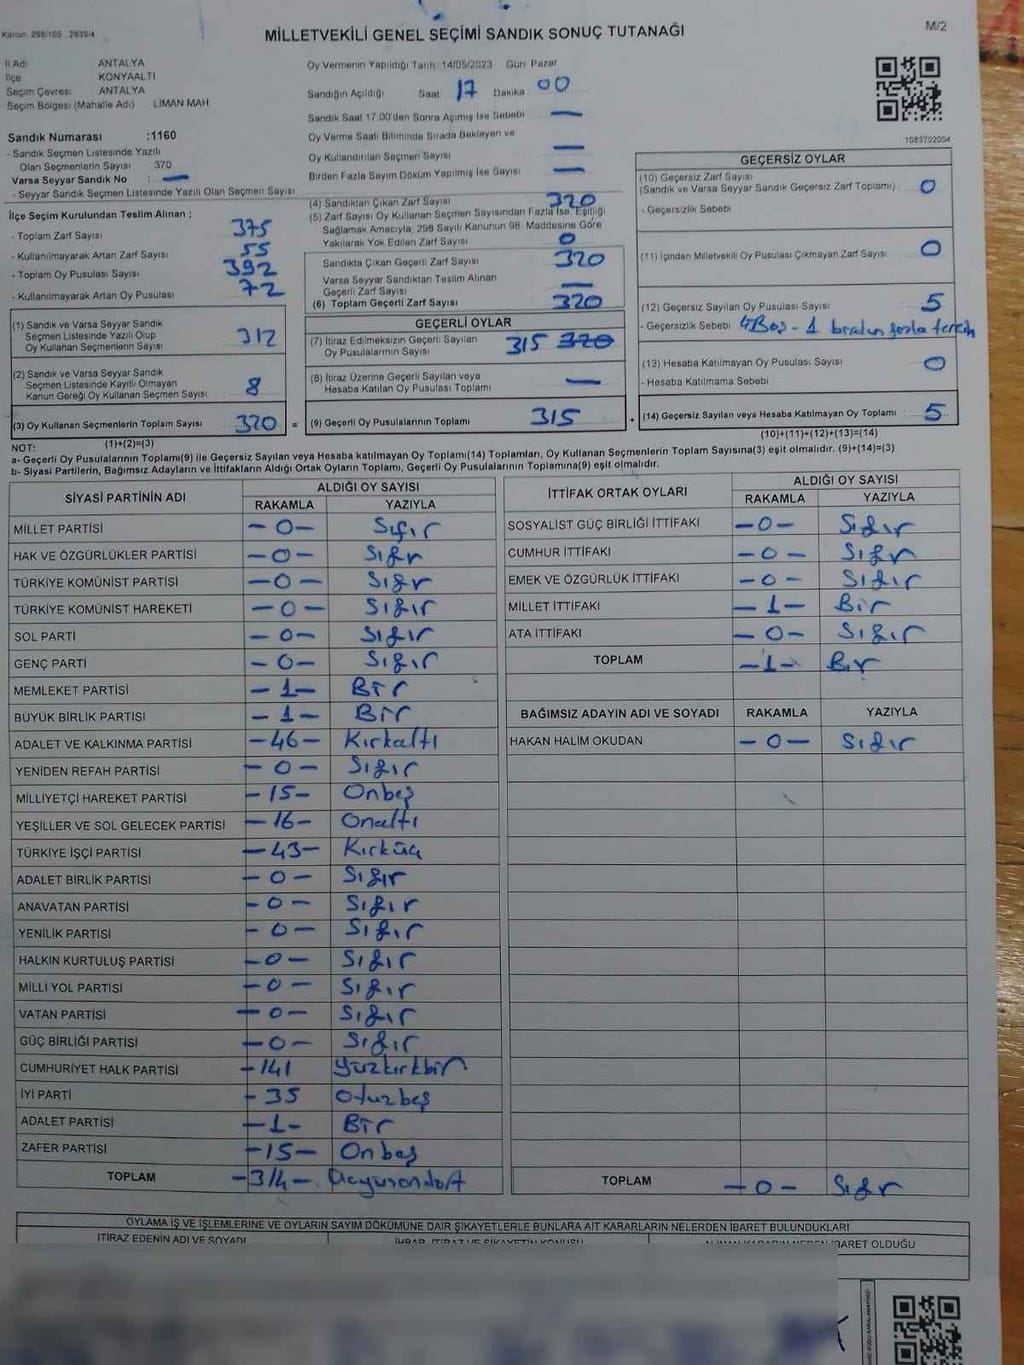 Kanun: 298/105 , 2839/4
MİLLETVEKİLİ GENEL SEÇİMİ SANDIK SONUÇ TUTANAĞI
M/2
İl Adı ANTALYA
İlçe KONYAALTI
Seçim Çevresi ANTALYA
Seçim Bölgesi (Mahalle Adı) LIMAN MAH
Sandık Numarası :1160
- Sandık Seçmen Listesinde Yazılı
Olan Seçmenlerin Sayısı 370
Varsa Seyyar Sandık No : —
- Seyyar Sandık Seçmen Listesinde Yazılı Olan Seçmen Sayısı
İlçe Seçim Kurulundan Teslim Alınan :
- Toplam Zarf Sayısı 375
- Kullanılmayarak Artan Zarf Sayısı 55
- Toplam Oy Pusulası Sayısı 392
- Kullanılmayarak Artan Oy Pusulası 72
(1) Sandık ve Varsa Seyyar Sandık
Seçmen Listesinde Yazılı Olup
Oy Kullanan Seçmenlerin Sayısı 312
(2) Sandık ve Varsa Seyyar Sandık
Seçmen Listesinde Kayıtlı Olmayan
Kanun Gereği Oy Kullanan Seçmen Sayısı 8
(3) Oy Kullanan Seçmenlerin Toplam Sayısı 320 =
(1)+(2)=(3)
Oy Vermenin Yapıldığı Tarih: 14/05/2023 Gün: Pazar
Sandığın Açıldığı Saat 17 Dakika 00
Sandık Saat 17.00'den Sonra Açımış İse Sebebi —
Oy Verme Saati Bitiminde Sırada Bekleyen ve
Oy Kullandırılan Seçmen Sayısı —
Birden Fazla Sayım Döküm Yapılmış İse Sayısı —
(4) Sandıktan Çıkan Zarf Sayısı 320
(5) Zarf Sayısı Oy Kullanan Seçmen Sayısından Fazla İse, Eşitliği
Sağlamak Amacıyla, 298 Sayılı Kanunun 98. Maddesine Göre
Yakılarak Yok Edilen Zarf Sayısı 0
Sandıkta Çıkan Geçerli Zarf Sayısı 320
Varsa Seyyar Sandıktan Teslim Alınan
Geçerli Zarf Sayısı —
(6) Toplam Geçerli Zarf Sayısı 320
GEÇERLİ OYLAR
(7) İtiraz Edilmeksizin Geçerli Sayılan
Oy Pusulalarının Sayısı 315 320
(8) İtiraz Üzerine Geçerli Sayılan veya
Hesaba Katılan Oy Pusulası Toplamı —
(9) Geçerli Oy Pusulalarının Toplamı 315 +
1083702004
GEÇERSİZ OYLAR
(10) Geçersiz Zarf Sayısı
(Sandık ve Varsa Seyyar Sandık Geçersiz Zarf Toplamı) : 0
- Geçersizlik Sebebi
(11) İçinden Milletvekili Oy Pusulası Çıkmayan Zarf Sayısı : 0
(12) Geçersiz Sayılan Oy Pusulası Sayısı : 5
- Geçersizlik Sebebi 4 Boş - 1 birden fazla tercih
(13) Hesaba Katılmayan Oy Pusulası Sayısı : 0
- Hesaba Katılmama Sebebi
(14) Geçersiz Sayılan veya Hesaba Katılmayan Oy Toplamı : 5
(10)+(11)+(12)+(13)=(14)
NOT:
a- Geçerli Oy Pusulalarının Toplamı(9) ile Geçersiz Sayılan veya Hesaba katılmayan Oy Toplamı(14) Toplamları, Oy Kullanan Seçmenlerin Toplam Sayısına(3) eşit olmalıdır. (9)+(14)=(3)
b- Siyasi Partilerin, Bağımsız Adayların ve İttifakların Aldığı Ortak Oyların Toplamı, Geçerli Oy Pusulalarının Toplamına(9) eşit olmalıdır.
SİYASİ PARTİNİN ADI ALDIĞI OY SAYISI
RAKAMLA YAZIYLA
MİLLET PARTİSİ —0— Sıfır
HAK VE ÖZGÜRLÜKLER PARTİSİ —0— Sıfır
TÜRKİYE KOMÜNİST PARTİSİ —0— Sıfır
TÜRKİYE KOMÜNİST HAREKETİ —0— Sıfır
SOL PARTİ —0— Sıfır
GENÇ PARTİ —0— Sıfır
MEMLEKET PARTİSİ —1— Bir
BÜYÜK BİRLİK PARTİSİ —1— Bir
ADALET VE KALKINMA PARTİSİ —46— Kırkaltı
YENİDEN REFAH PARTİSİ —0— Sıfır
MİLLİYETÇİ HAREKET PARTİSİ —15— Onbeş
YEŞİLLER VE SOL GELECEK PARTİSİ —16— Onaltı
TÜRKİYE İŞÇİ PARTİSİ —43— Kırküç
ADALET BİRLİK PARTİSİ —0— Sıfır
ANAVATAN PARTİSİ —0— Sıfır
YENİLİK PARTİSİ —0— Sıfır
HALKIN KURTULUŞ PARTİSİ —0— Sıfır
MİLLİ YOL PARTİSİ —0— Sıfır
VATAN PARTİSİ —0— Sıfır
GÜÇ BİRLİĞİ PARTİSİ —0— Sıfır
CUMHURİYET HALK PARTİSİ —141 Yüzkırkbir
İYİ PARTİ —35 Otuzbeş
ADALET PARTİSİ —1— Bir
ZAFER PARTİSİ —15— Onbeş
TOPLAM —314— Üçyüzondört
İTTİFAK ORTAK OYLARI ALDIĞI OY SAYISI
RAKAMLA YAZIYLA
SOSYALİST GÜÇ BİRLİĞİ İTTİFAKI —0— Sıfır
CUMHUR İTTİFAKI —0— Sıfır
EMEK VE ÖZGÜRLÜK İTTİFAKI —0— Sıfır
MİLLET İTTİFAKI —1— Bir
ATA İTTİFAKI —0— Sıfır
TOPLAM —1— Bir
BAĞIMSIZ ADAYIN ADI VE SOYADI RAKAMLA YAZIYLA
HAKAN HALİM OKUDAN —0— Sıfır
TOPLAM —0— Sıfır
OYLAMA İŞ VE İŞLEMLERİNE VE OYLARIN SAYIM DÖKÜMÜNE DAİR ŞİKAYETLERLE BUNLARA AİT KARARLARIN NELERDEN İBARET BULUNDUKLARI
İTİRAZ EDENİN ADI VE SOYADI İHBAR, İTİRAZ VE ŞİKAYETİN KONUSU İBARET OLDUĞU